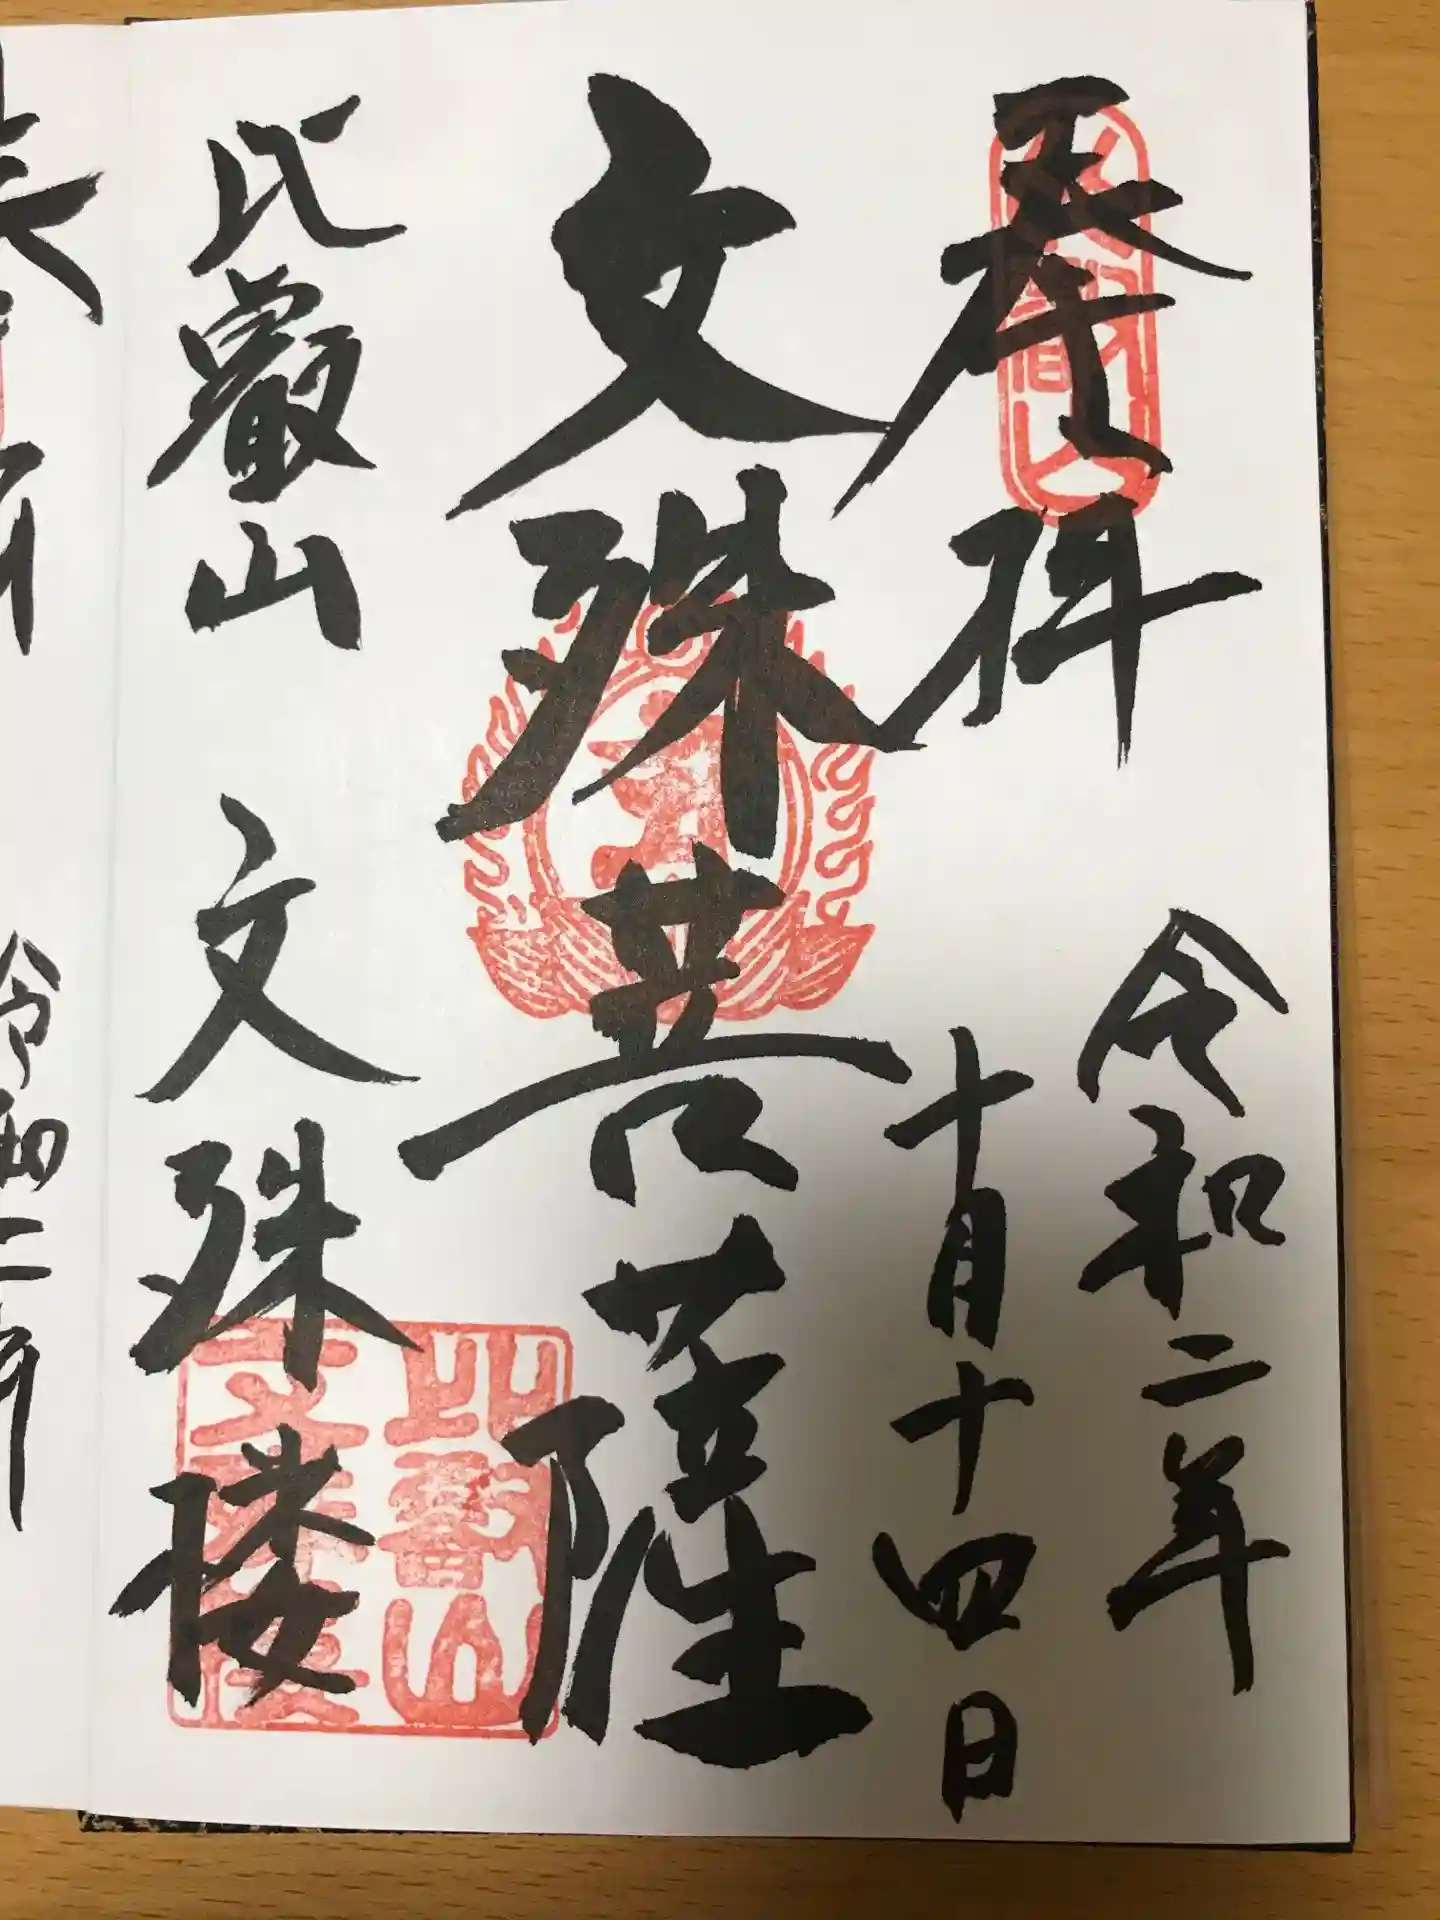 奉拝
令和二年
十月十四日
文殊菩薩
比叡山
文殊楼
比叡山
文殊楼
令和二年